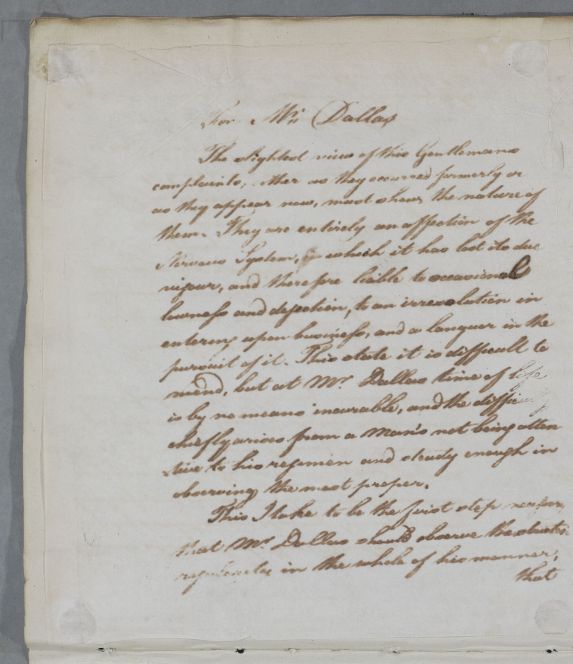 For Mr. Dallas
The slightest view of this Gentlemans
complaints, either as they occurred formerly or
as they appear now, must shew the nature of
them. They are entirely an affection of the
Nervous System, in which it has lost its due
vigour, and therefore liable to occasional
lowness and dejection, to an irresolution in
entering upon business, and a languor in the
pursuit of it. This state it is difficult to
mend, but at Mr. Dallas time of life
is by no means incurable, and the difficulty
chiefly arises from a Man's not being atten
tive to his regimen and steady enough in
observing the most proper.
This I take to be the first step
that Mr. Dallas should observe the strictest
regularity in the whole of his manner,
that